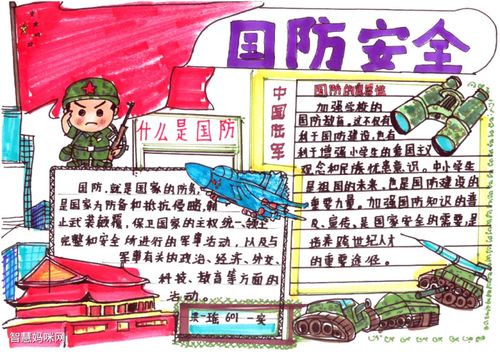 国防安全
什么是国防
国防,就是国家的防务,
是国家为防备和抵抗侵略,制
止武装颠覆,保卫国家的主权统一、领土
完整和安全所进行的军事活动,以及与
军事有关的政治、经济、外交、
科技、教育等方面的
活动。
中国陆军
国防的重要性
加强学校的
国防教育,这不仅有
利于国防建设,也有
利于增强小学生的爱国主义
观念和民族忧患意识。中小学生
是祖国的未来,也是国防建设的
重要力量。加强国防知识的普
及、宣传,是国家安全的需要,是
培养跨世纪人才
的重要途径。
601
智慧妈咪网